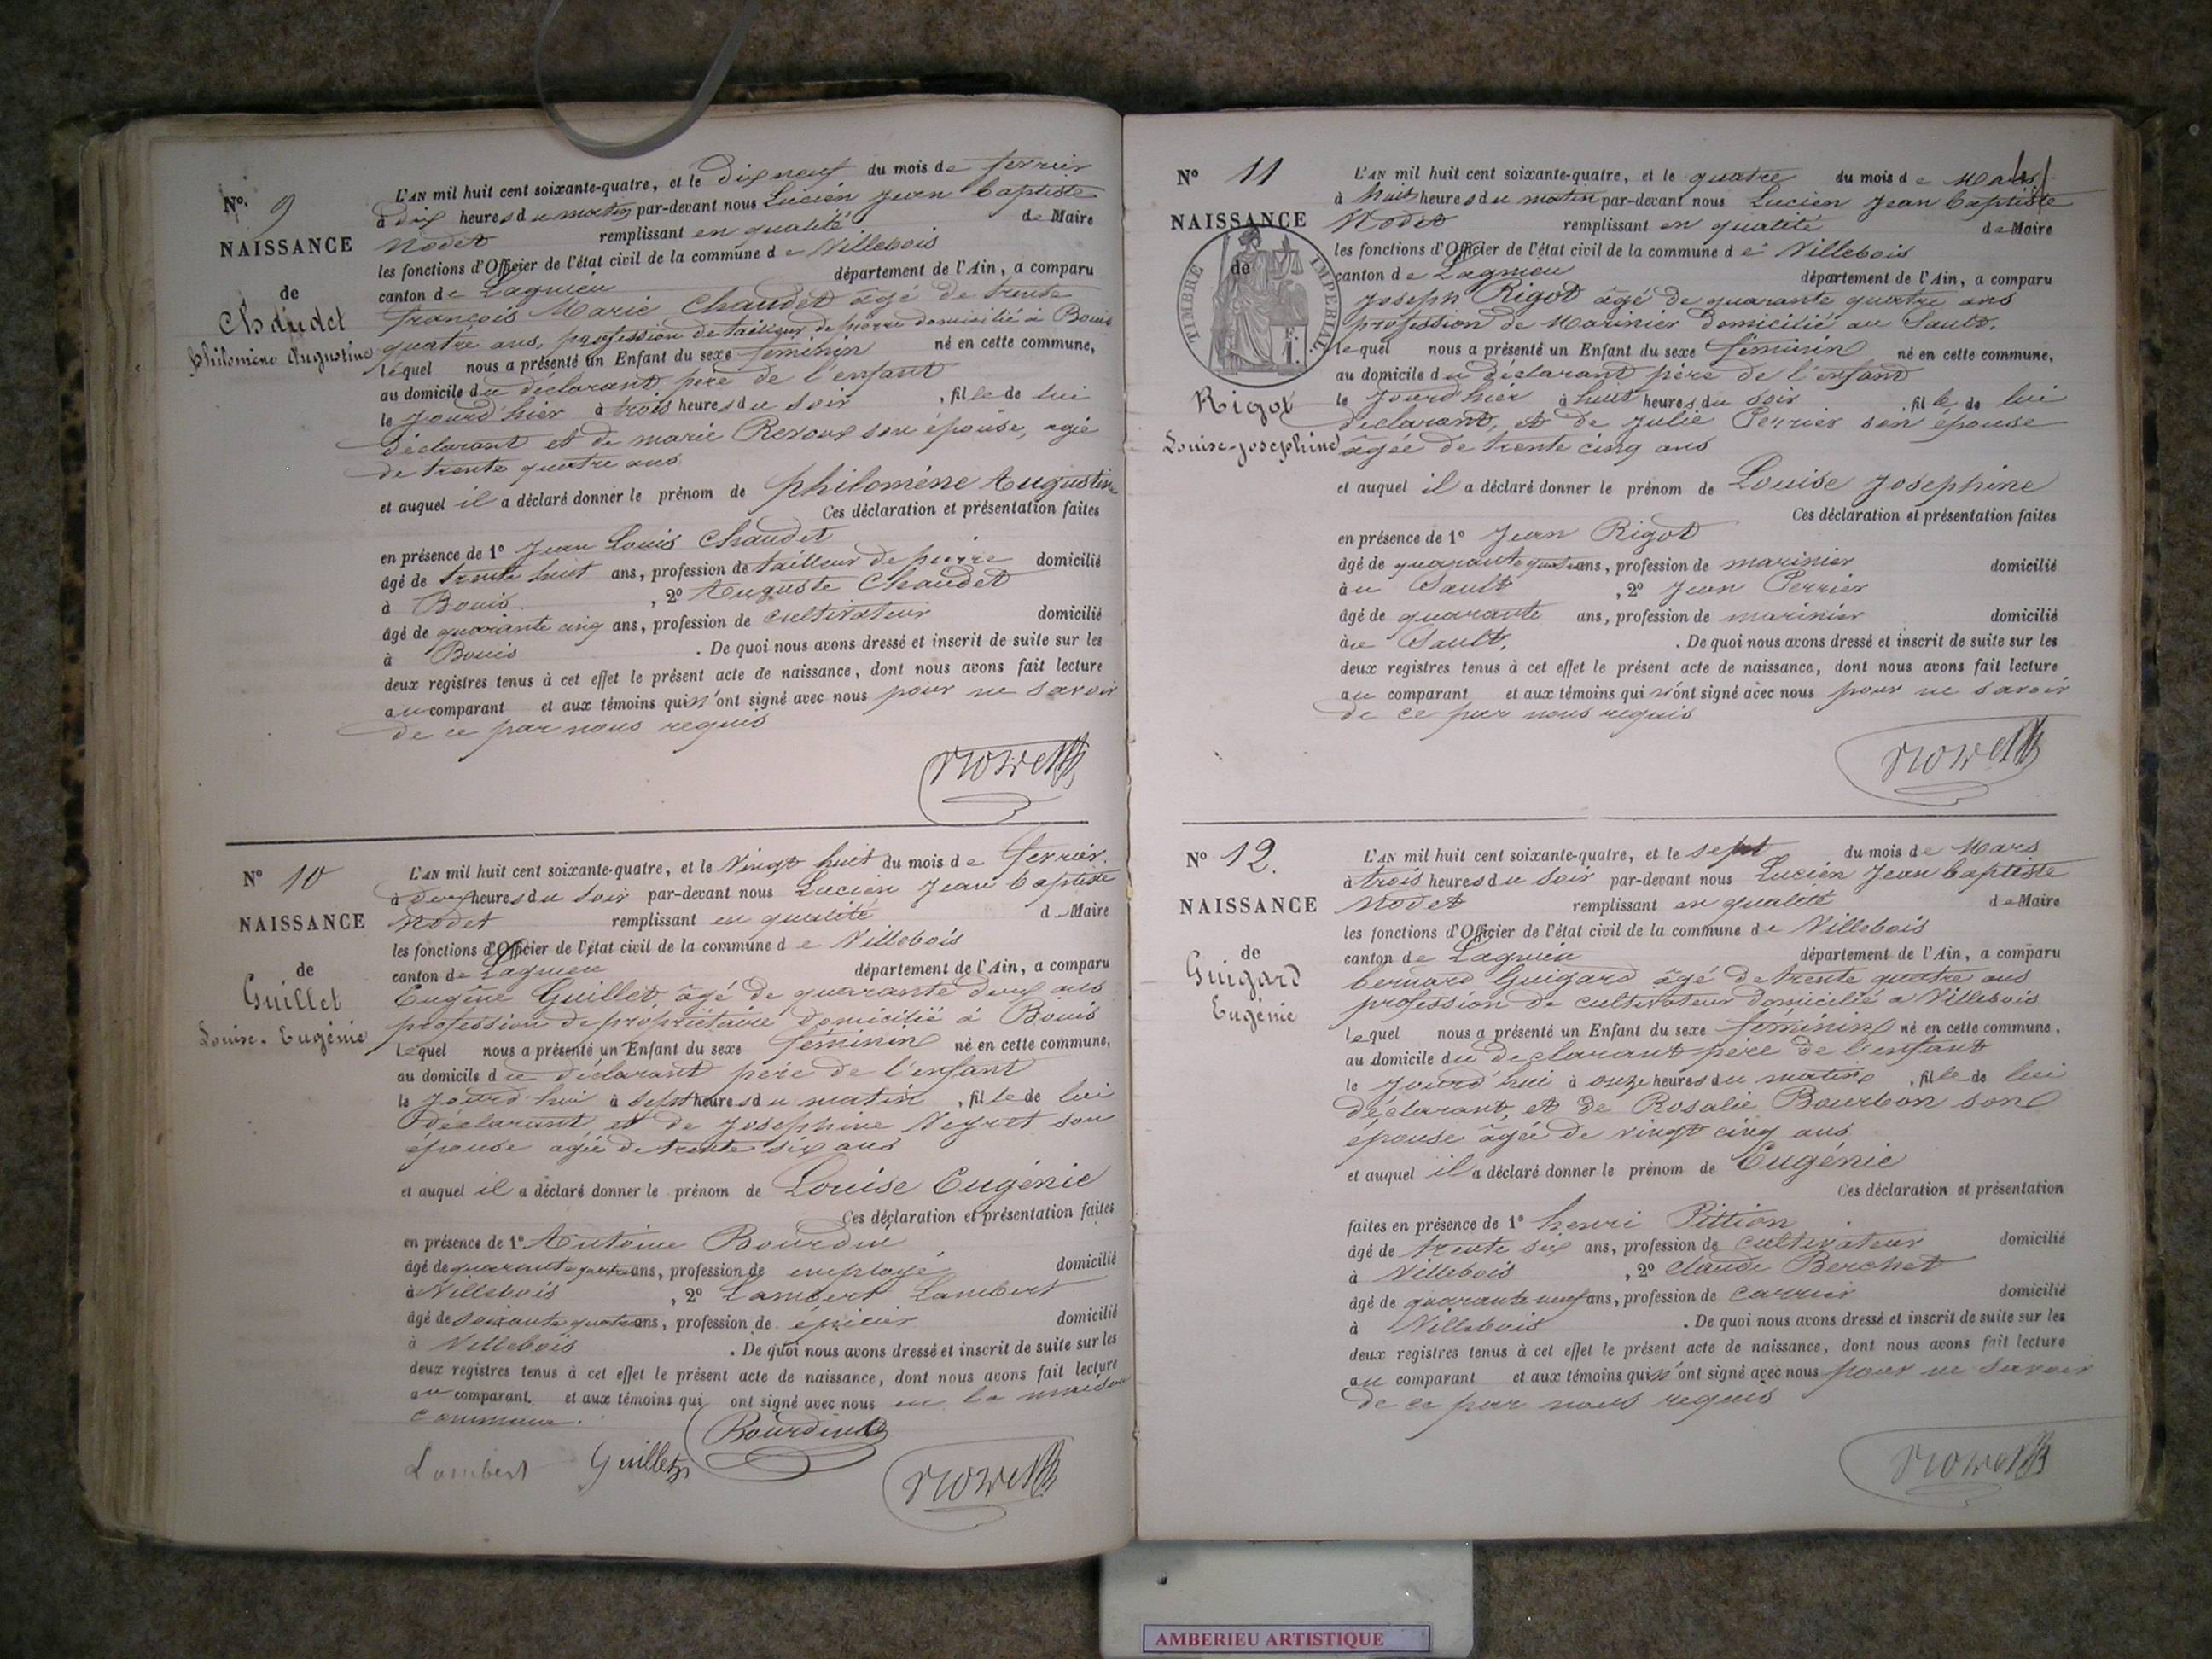 N°. 9
NAISSANCE
de
Chaudet
Philomène Augustine
L'AN mil huit cent soixante-quatre, et le Dix neuf du mois de ferrier
à dix heures du matin par-devant nous Lucien Jean baptiste
Nodet remplissant en qualité de Maire
les fonctions d'Officier de l'état civil de la commune de Villebois
canton de Lagnieu département de l'Ain, a comparu
françois Marie Chaudet âgé de trente
quatre ans, profession de tailleur de pierre domicilié à Bouis
lequel nous a présenté un Enfant du sexe féminin né en cette commune,
au domicile du déclarant père de l'enfant
le jourd'hier à trois heures du soir , fille de lui
déclarant et de marie Reroux son épouse, agée
de trente quatre ans
et auquel il a déclaré donner le prénom de philomène Augustine
Ces déclaration et présentation faites
en présence de 1° Jean Louis Chaudet
âgé de trente huit ans, profession de tailleur de pierre domicilié
à Bouis , 2° Auguste Chaudet
âgé de quarante cinq ans, profession de cultivateur domicilié
à Bouis . De quoi nous avons dressé et inscrit de suite sur les
deux registres tenus à cet effet le présent acte de naissance, dont nous avons fait lecture
au comparant et aux témoins qui n'ont signé avec nous pour ne savoir
de ce par nous requis
N° 10
NAISSANCE
de
Guillet
Louise-Eugénie
L'AN mil huit cent soixante-quatre, et le Vingt huit du mois de ferrier.
à deux heures du soir par-devant nous Lucien Jean baptiste
Nodet remplissant en qualité de Maire
les fonctions d'Officier de l'état civil de la commune de Villebois
canton de Lagnieu département de l'Ain, a comparu
Eugène Guillet, âgé de quarante deux ans
profession de propriétaire domicilié à Bouis
lequel nous a présenté un Enfant du sexe féminin né en cette commune,
au domicile du déclarant père de l'enfant
le jourd'hui à sept heures du matin , fille de lui
déclarant et de Joséphine Neyret son
épouse agée de trente six ans
et auquel il a déclaré donner le prénom de Louise Eugénie
Ces déclaration et présentation faites
en présence de 1° Antoine Bourdin
âgé de quarante quatre ans, profession de employé domicilié
à Villebois , 2° Lambert Lambert
âgé de soixante quatre ans, profession de épicier domicilié
à Villebois . De quoi nous avons dressé et inscrit de suite sur les
deux registres tenus à cet effet le présent acte de naissance, dont nous avons fait lecture
au comparant et aux témoins qui ont signé avec nous en la maison
commune.
Lambert Guillet Bourdin
N° 11
NAISSANCE
de
TIMBRE IMPERIAL
Rigot
Louise-Josephine
L'AN mil huit cent soixante-quatre, et le quatre du mois de Mars
à huit heures du matin par-devant nous Lucien Jean baptiste
Nodet remplissant en qualité de Maire
les fonctions d'Officier de l'état civil de la commune de Villebois
canton de Lagnieu département de l'Ain, a comparu
Joseph Rigot âgé de quarante quatre ans
profession de Marinier domicilié au Sault,
lequel nous a présenté un Enfant du sexe féminin né en cette commune,
au domicile du déclarant père de l'enfant
le jourd'hier à huit heures du soir , fille de lui
déclarant, et de Julie Perrier son épouse
âgée de trente cinq ans
et auquel il a déclaré donner le prénom de Louise Josephine
Ces déclaration et présentation faites
en présence de 1° Jean Rigot
âgé de quarante quatre ans, profession de marinier domicilié
au Sault , 2° Jean Perrier
âgé de quarante ans, profession de marinier domicilié
au Sault, . De quoi nous avons dressé et inscrit de suite sur les
deux registres tenus à cet effet le présent acte de naissance, dont nous avons fait lecture
au comparant et aux témoins qui n'ont signé avec nous pour ne savoir
de ce par nous requis
N° 12.
NAISSANCE
de
Guigard
Eugénie
L'AN mil huit cent soixante-quatre, et le sept du mois de Mars
à trois heures du soir par-devant nous Lucien Jean baptiste
Nodet remplissant en qualité de Maire
les fonctions d'Officier de l'état civil de la commune de Villebois
canton de Lagnieu département de l'Ain, a comparu
bernard Guigard âgé de trente quatre ans
profession de cultivateur domicilié a Villebois
lequel nous a présenté un Enfant du sexe féminin né en cette commune,
au domicile du déclarant père de l'enfant
le jourd'hui à onze heures du matin , fille de lui
déclarant, et de Rosalie Bourbon son
épouse âgée de vingt cinq ans
et auquel il a déclaré donner le prénom de Eugénie
Ces déclaration et présentation
faites en présence de 1° henri Pittion
âgé de trente six ans, profession de cultivateur domicilié
à Villebois , 2° claude Berchet
âgé de quarante neuf ans, profession de carrier domicilié
à Villebois . De quoi nous avons dressé et inscrit de suite sur les
deux registres tenus à cet effet le présent acte de naissance, dont nous avons fait lecture
au comparant et aux témoins qui n'ont signé avec nous pour ne savoir
de ce par nous requis
AMBERIEU ARTISTIQUE